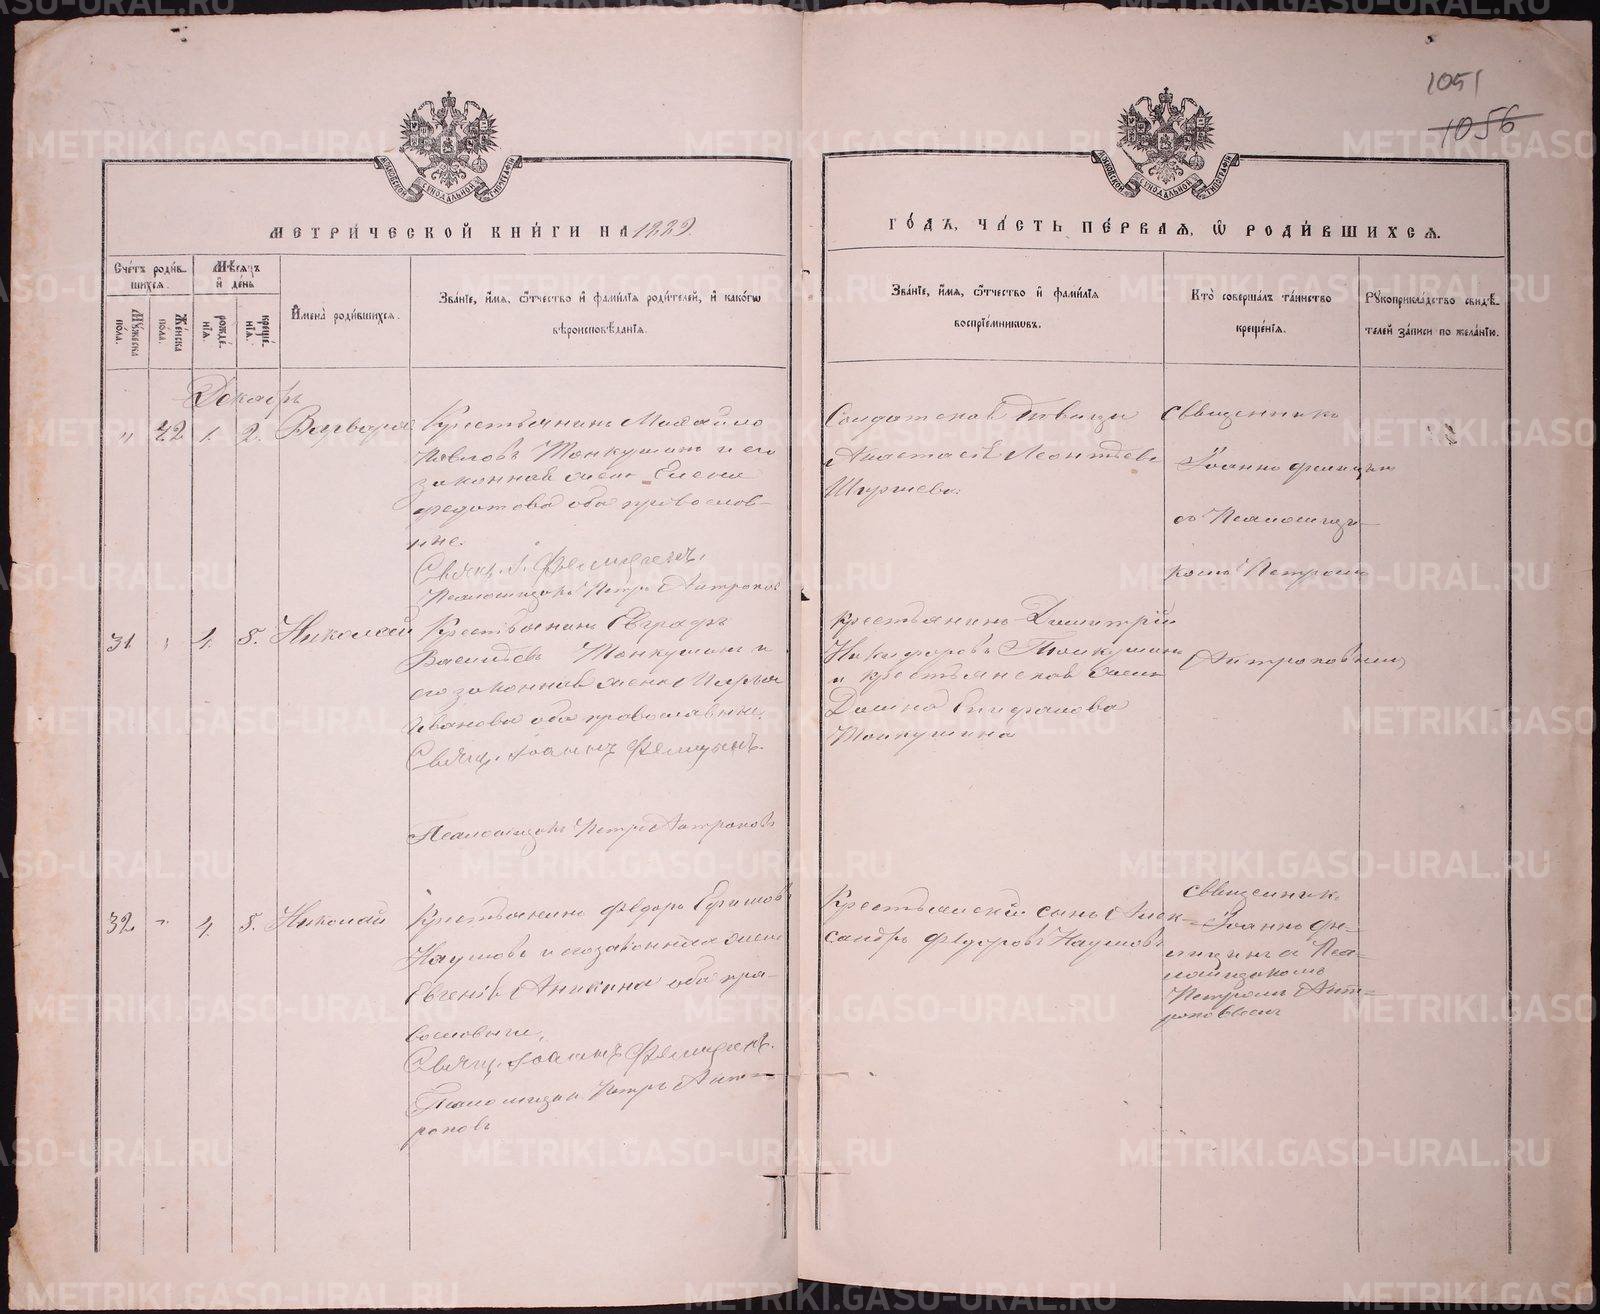 1051
1056
МОСКОВСКОЙ СѴНОДАЛЬНОЙ ТИПОГРАФІИ
МОСКОВСКОЙ СѴНОДАЛЬНОЙ ТИПОГРАФІИ
МЕТРИ́ЧЕСКОЙ КНИ́ГИ НА 1889
ГО́ДЪ, ЧА́СТЬ ПЕ́РВАЯ, Ѡ РОДИ́ВШИХСЯ.
Сче́тъ роди́в-
шихся.
Мꙋ́жеска
пола.
Же́нска
пола.
Мѣ́сяцъ
и҆ де́нь
рожде́-
нїя.
креще́-
нїя.
И҆мена̀ роди́вшихся.
Зва́нїе, и҆́мя, ѻ҆́тчество и҆ фами́лїя роди́телей, и҆ како́гѡ
вѣроисповѣ́данїя.
Зва́нїе, и҆́мя, ѻ҆́тчество и҆ фами́лїя
воспрїе́мникѡвъ.
Кто̀ соверша́лъ та́инство
креще́нїя.
Рꙋкоприкла́дство свидѣ́-
телей за́писи по жела́нїю.
Декабрь
" 22 1. 2. Варвара
Крестьянинъ Михайло
Павловъ Тонкушинъ и его
законная жена Елена
Федотова оба православ-
ные.
Свящ. І. Фелицинъ.
Псаломщикъ Петръ Антроповъ
Солдатская девица
Анастасія Леонтьева
Ширяева.
Священникъ
Іоаннъ Фелицинъ
съ Псаломщи-
комъ Петромъ
Антроповымъ
31 " 4. 5. Николай
Крестьянинъ Евграфъ
Васильевъ Тонкушинъ и
его законная жена Марья
Иванова оба православные.
Свящ. Іоаннъ Фелицынъ.
Псаломщикъ Петръ Антроповъ
Крестьянинъ Димитрій
Никифоровъ Тонкушинъ
и крестьянская жена
Домна
Тонкушина
32 " 4. 5. Николай
Крестьянинъ Федоръ Ефимовъ
Наумовъ и его законная жена
Евгенія Аникина оба пра-
вославные.
Свящ. Іоаннъ Фелицынъ.
Псаломщикъ Петръ Ант-
роповъ
Крестьянскій сынъ Алек-
сандръ Федоровъ Наумовъ
Священникъ
Іоаннъ Фе-
лицинъ съ Пса-
ломщикомъ
Петромъ Ант-
роповымъ
METRIKI.GASO-URAL.RU